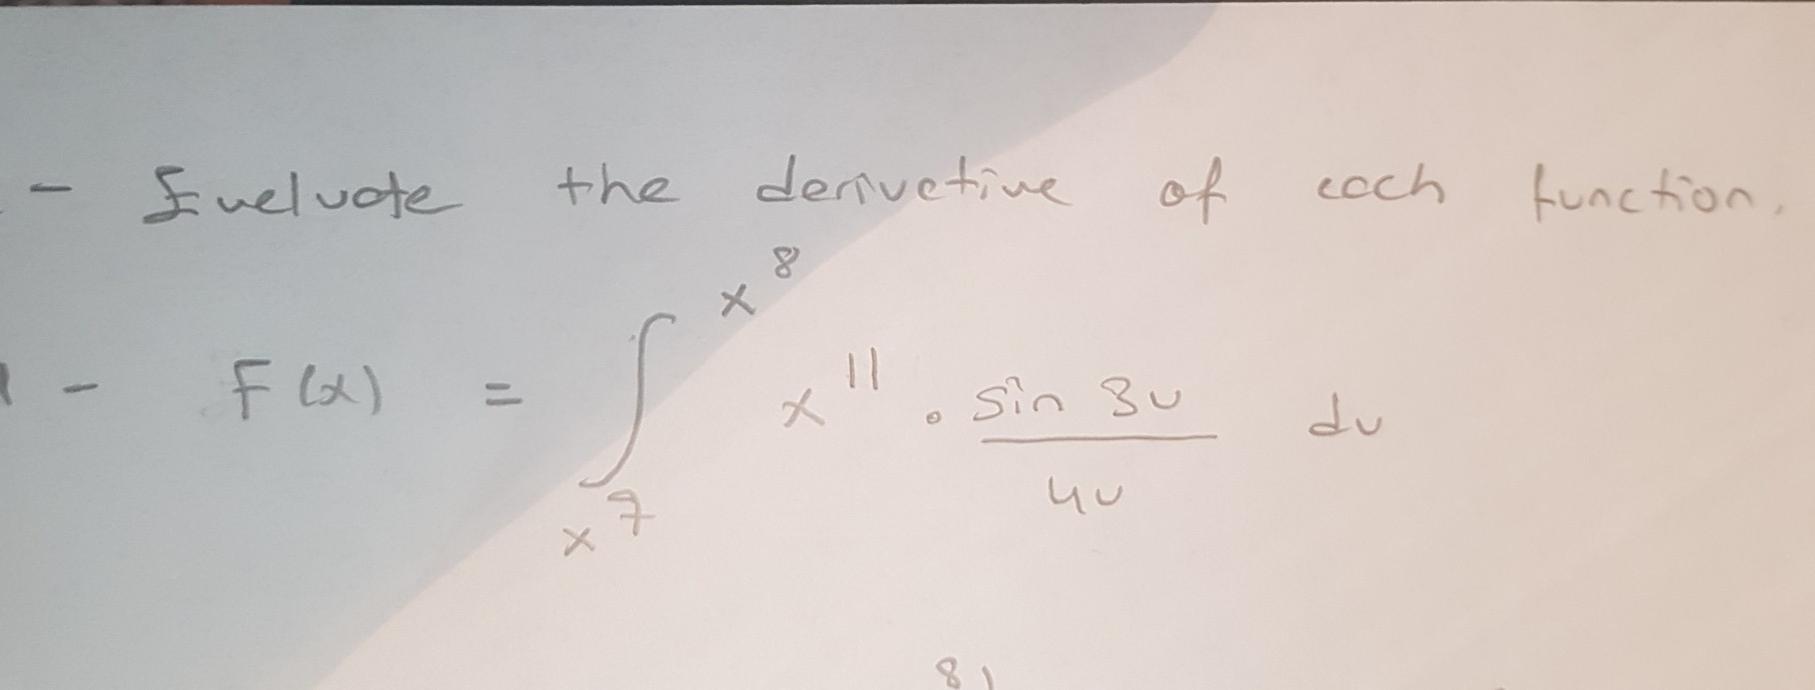 - Eveluate the derivetive of each function.
1 - F(x) = ∫_{x^7}^{x^8} x^{11} . \frac{sin 3u}{4u} du
8)